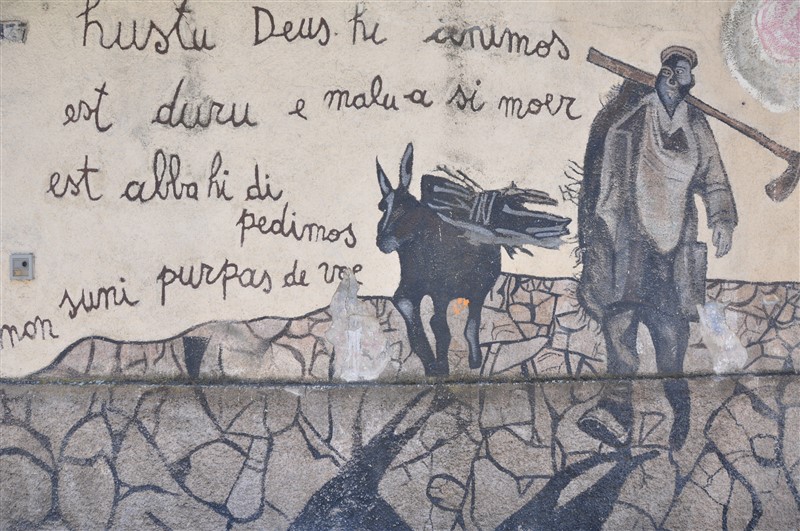 hustu Deus hi animos
est duru e malu a si moer
est abba hi di
pedimos
non suni purpas de